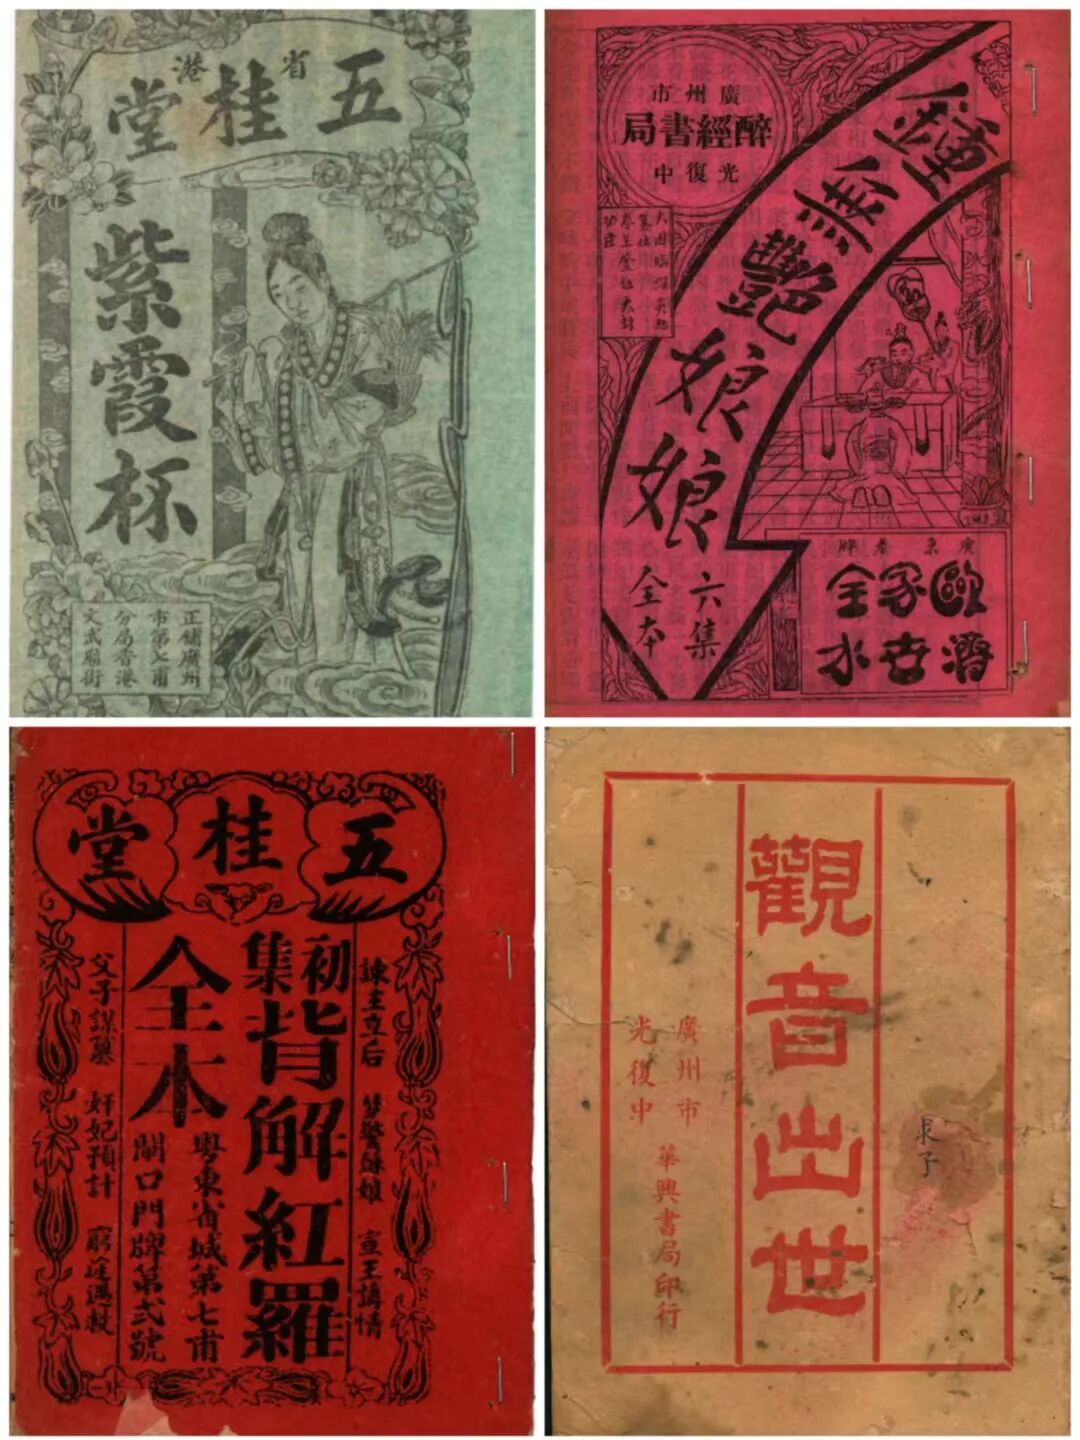 省港
五桂堂
紫霞杯
正鋪廣州
市第七甫
分局香港
文武廟街
廣州市
醉經書局
光復中
鍾無艷娘娘
六集
全本
廣東老牌
歐家全
濟眾水
五桂堂
諫主立后 梦驚蘇娘 宣王講情
初集背解紅羅
全本
粵東省城第七甫
閘口門牌第弍號
父子謀篡 奸妃預計 窮途遇救
求子
觀音出世
廣州市
光復中
華興書局印行